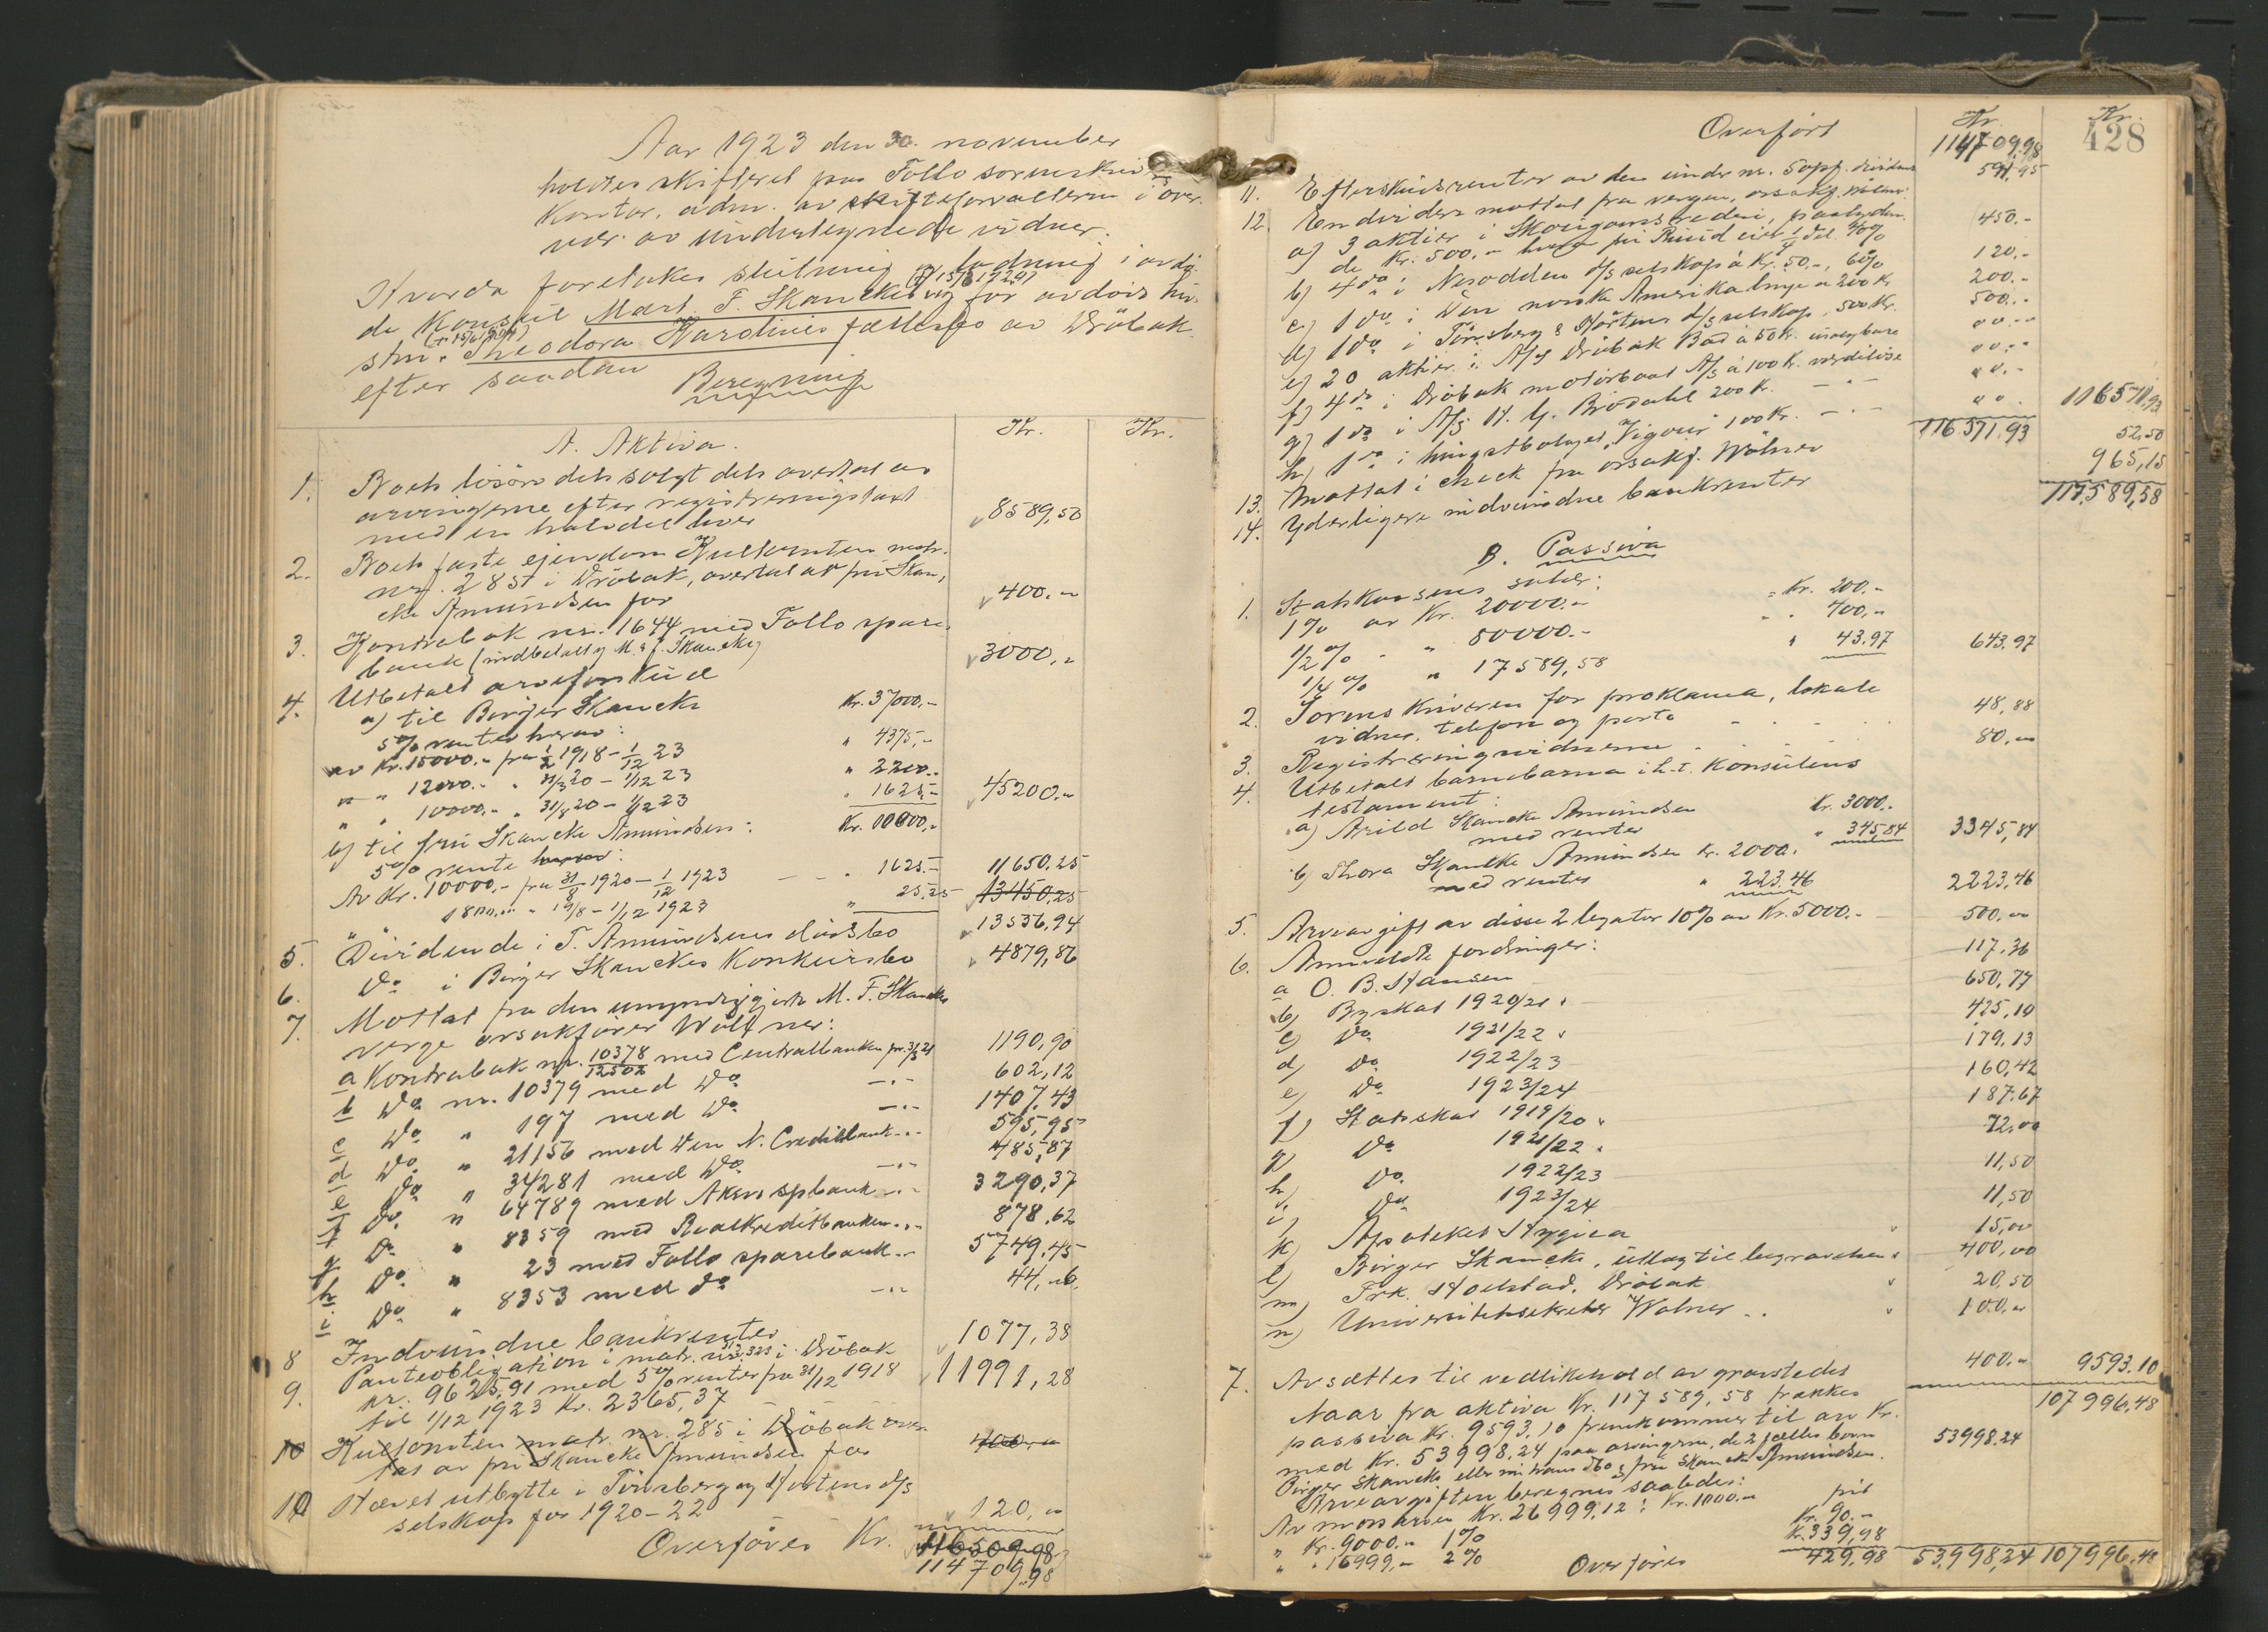 Aar 1923 den 30. november
holdtes skifteret paa Follo sorenskriver
kontor, adm. av skifteforvalteren i over
vær av undertegnede vidner.
Hvorda foretokes slutning og lodning i avdö
de Konsul Mart. F. Skanckes og for avdöis hu-
(† 15/6 1921)
stru Theodora Karolines fællesbo av Dröbak
efter saadan
Beregning
Kr. Kr.
A. Aktiva.
1. Boets lösöre dels solgt dels overtat av
arvingerne efter registreringstakst
med en halvdel hver 8589,50
2. Boets faste eiendom Kulltomten matr.
nr. 285 i Dröbak, overtat av fru Skan,
cke Amundsen for 400.-
3. Kontrabok nr. 1644 med Follo spare
bank (indbetalt J. Skancke) 3000,-
4. Utbetalt arveforskud
a) til Birger Skancke Kr. 37000.-
5% renter herav:
av Kr. 15000.- fra 1/2 1918 - 1/12 23 " 4375,-
" " 12000.- " 31/3 20 - 1/12 23 " 2200.-
" " 10000.- " 31/8 20 - 1/12 23 " 1625,- 45200.-
b) til fru Skancke Amundsen: Kr. 10000,-
5% rente herav:
Av Kr. 10000,- fra 31/8 1920 - 1/12 1923 " 1625.- 11650.25
1800.- " 19/8 - 1/12 1923 " 25,25 13450.25
5. Dividende i T. Amundsens dödsbo 13536,94
6. Do i Birger Skanckes Konkursbo 4879,86
7. Mottat fra den umyndiggjorte M. F. Skanckes
verge orsakförer Wölner:
a Kontrabok nr. 10378/12502 med Centralbanken pr. 31/3 21 1190,90
b Do nr. 10379 med Do 602,12
c Do " 197 med Do 1407,43
d Do " 21156 med Den N. Creditbank 595,95
e Do " 34281 med Do 485,87
f Do " 64789 med Akers spbank 3290,37
g Do " 8359 med Realkreditbanken 878,62
h Do " 23 med Follo sparebank 5749,45
i Do " 8353 med Do 44,06
8 Indvundne bankrenter 1077,38
9. Panteobligation i matr. nr. 323 i Dröbak
kr. 9625,91 med 5% renter fra 31/12 1918
til 1/12 1923 Kr. 2365,37 11991,28
10 Kulltomten matr. nr. 285 i Dröbak over
tat av fru Skancke Amundsen for 400,-
10 Hævet utbytte i Tönsberg og Hortens d/s
selskap for 1920-22 120,-
Overföres Kr. 116509.98
114709,98
428
Kr. Kr.
Overfört 114709,98
11. Efterskudsrenter av den under nr. 5 opf. dividende 591,95
12. Endvidere mottat fra vergen, orsakf. Wölner
a) 3 aktier i Skougaards rederi, paalydende
Kr. 500.- 450.-
b) 4 do i Nesodden d/s selskap à Kr. 50.-, 60% 120.-
c) 1 do i Den norske Amerikalinje a 200 Kr 200.-
d) 1 do i Tönsberg & Hortens d/s selskap, 500 Kr. 500.-
e) 20 aktier i A/s Dröbak Bad à 50 Kr. usælgbare
f) 4 do i Dröbak motorbaat A/s à 100 Kr. værdilöse
g) 1 do i A/s H. G. Brödahl 200 Kr.
h) 1 do i hingstbolaget Vigour 100 Kr. 116571,93 116571,93
13. Mottat i check fra orsakf. Wölner 52,50
14. Yderligere indvundne bankrenter 965,15
117,589,58
B. Passiva
1. Statskassens saler:
1% av Kr. 20000.- = Kr. 200.-
1/2% - " 80000.- " 400,-
1/4% " 17589,58 " 43.97 643.97
2. Sorenskriveren for proklama, lokale
vidner, telefon og porto 48,88
3. Registreringsvidnerne 80,-
4. Utbetalt barnebarna i h.t. Konsulens
testament:
a) Arild Skancke Amundsen Kr. 3000.-
med renter " 345,84 3345,84
b) Thora Skancke Amundsen Kr. 2000.
med renter " 223,46 2223,46
5. Arveavgift av disse 2 legater 10% av Kr. 5000.- 500,00
6. Anmeldte fordringer:
a O. B. Hansen 117,36
b) Byskat 1920/21 650,77
c) Do 1921/22 425,10
d) Do 1922/23 179,13
e) Do 1923/24 160,42
f) Statsskat 1919/20 187.67
g) Do 1921/22 72,00
h) Do 1922/23 11,50
i) Do 1923/24 11,50
k) Apoteket Hygiea 15,00
l) Birger Skancke, utlæg til begravelsen 400,00
m) Frk. Hoelstad, Dröbak 20,50
n) Universitetssekretær Wolner 100,-
7. Avsættes til vedlikehold av gravstedet 400.- 9593.10
Naar fra aktiva Kr. 117589,58 trækkes 107996,48
passiva Kr. 9593,10 fremkommer til arv Kr.
med Kr. 53998,24 paa arvingerne, de 2 fælles barn 53998.24
Birger Skancke eller hans Kbo & fru Skancke Amundsen.
Arveavgiften beregnes saaledes:
Av morsarven Kr. 26999,12: Kr. 1000.- fri
" Kr. 9000.- 1% Kr. 90.-
" " 16999,- 2% Kr. 339,98
Overföres 429,98 53,998,24 107996,48